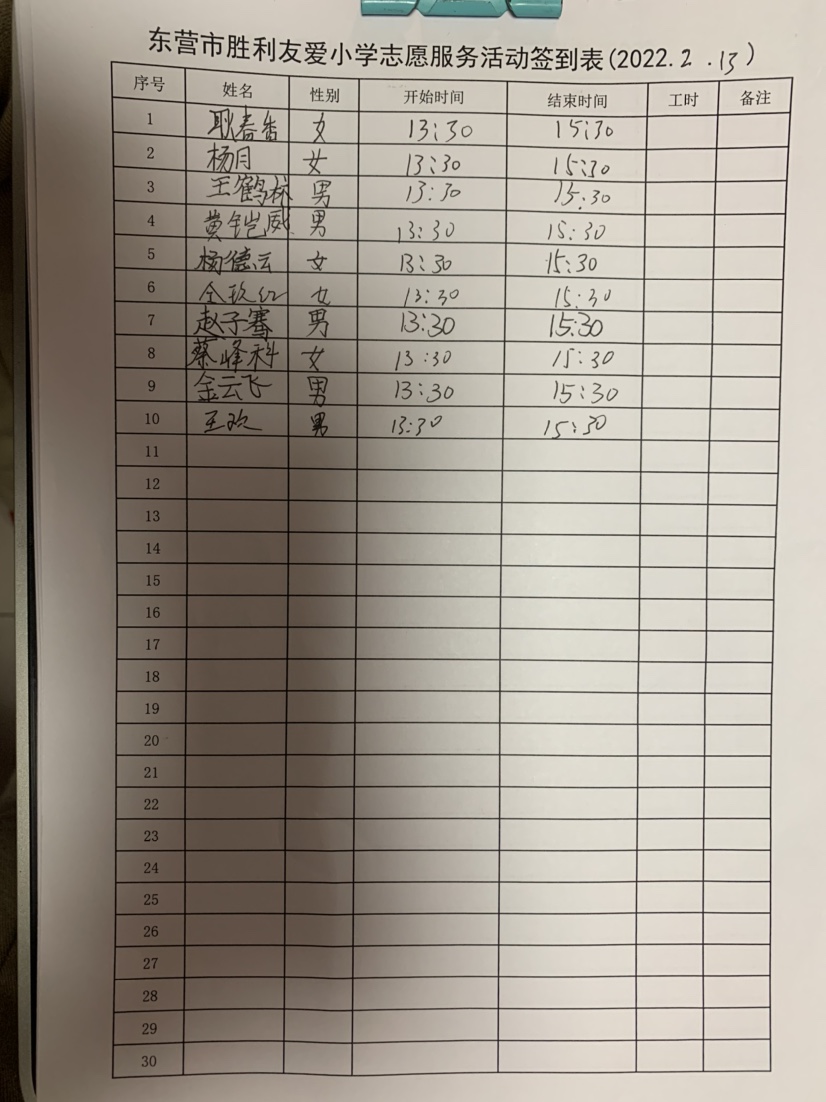 东营市胜利友爱小学志愿服务活动签到表(2022.2.13)
序号 姓名 性别 开始时间 结束时间 工时 备注
1 耿春香 女 13:30 15:30
2 杨月 女 13:30 15:30
3 王鹤标 男 13:30 15:30
4 黄铠威 男 13:30 15:30
5 杨德云 女 13:30 15:30
6 仝玖红 女 13:30 15:30
7 赵子骞 男 13:30 15:30
8 蔡峰科 女 13:30 15:30
9 金云飞 男 13:30 15:30
10 王欢 男 13:30 15:30
11
12
13
14
15
16
17
18
19
20
21
22
23
24
25
26
27
28
29
30